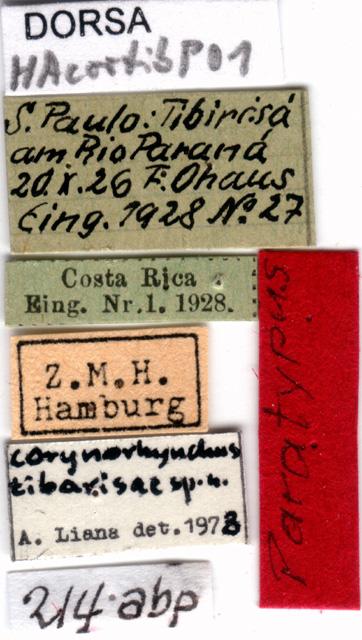 DORSA
HAcortibP01
S. Paulo: Tibirisá
am. Rio Paraná
20.X.26 F. Ohaus
Eing. 1928 No. 27
Costa Rica
Eing. Nr.1. 1928.
Z.M.H.
Hamburg
Corynorhynchus
tibarisae sp.n.
A. Liana det.1973
Paratypus.
214·abp